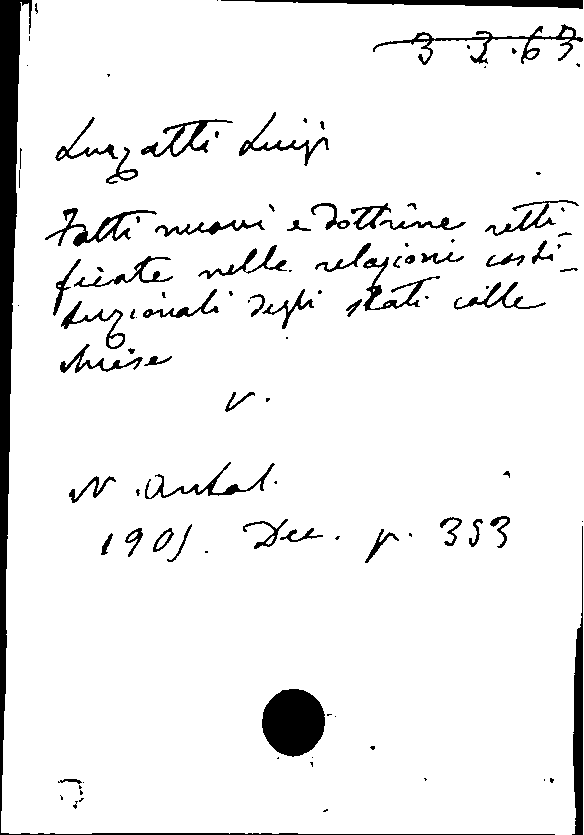 3 3.63.
Luzzatti Luigi
Fatti nuovi e dottrine retti-
ficate nelle relazioni costi-
tuzionali degli stati colle
chiese
V.
N. Antol.
1905. Dec. p. 353